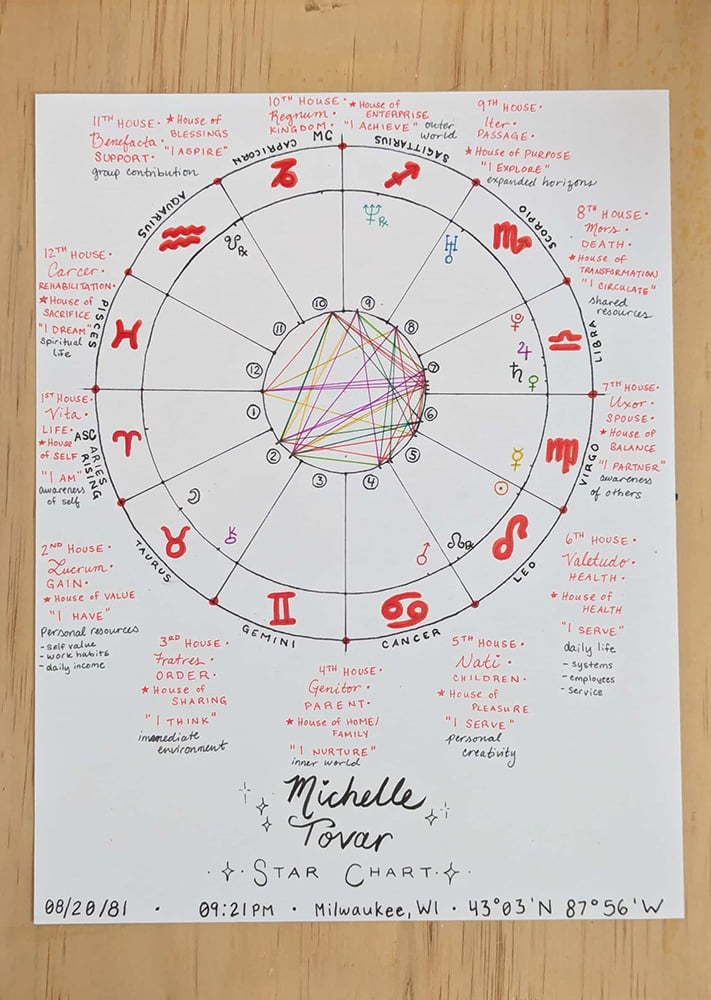 10TH HOUSE·
Regnum·
KINGDOM·
★ House of
ENTERPRISE
"I ACHIEVE" outer
world
9TH HOUSE·
Iter·
PASSAGE·
★ House of PURPOSE
"I EXPLORE"
expanded horizons
11TH HOUSE·
Benefacta·
SUPPORT·
★ House of
BLESSINGS
"I ASPIRE"
group contribution
8TH HOUSE·
Mors·
DEATH·
★ House of
TRANSFORMATION
"I CIRCULATE"
shared
resources
12TH HOUSE·
Carcer·
REHABILITATION·
★ House of
SACRIFICE
"I DREAM"
spiritual
life
1ST HOUSE·
Vita·
LIFE·
★ House
of SELF
"I AM"
awareness
of self
7TH HOUSE·
Uxor·
SPOUSE·
★ House of
BALANCE
"I PARTNER"
awareness
of others
2ND HOUSE·
Lucrum·
GAIN·
★ House of VALUE
"I HAVE"
Personal resources
- self value
- work habits
- daily income
6TH HOUSE·
Valetudo·
HEALTH·
★ House of
HEALTH
"I SERVE"
daily life
- systems
- employees
- service
3RD HOUSE·
Fratres·
ORDER·
★ House of
SHARING
"I THINK"
immediate
environment
4TH HOUSE·
Genitor·
PARENT·
★ House of HOME/
FAMILY
"I NURTURE"
inner world
5TH HOUSE·
Nati·
CHILDREN·
★ House of
PLEASURE
"I SERVE"
personal
creativity
MC
CAPRICORN
SAGITTARIUS
SCORPIO
LIBRA
VIRGO
LEO
CANCER
GEMINI
TAURUS
ASC ARIES
RISING
PISCES
AQUARIUS
♑
♐
♏
♎
♍
♌
♋
♊
♉
♈
♓
♒
♆℞
♅
♇
♃
♄ ♀
☿
☉
☊℞
♂
⚷
☽
☋℞
10
9
8
7
6
5
4
3
2
1
12
11
Michelle
Tovar
STAR CHART
08/20/81 · 09:21PM · Milwaukee, WI · 43°03'N 87°56'W